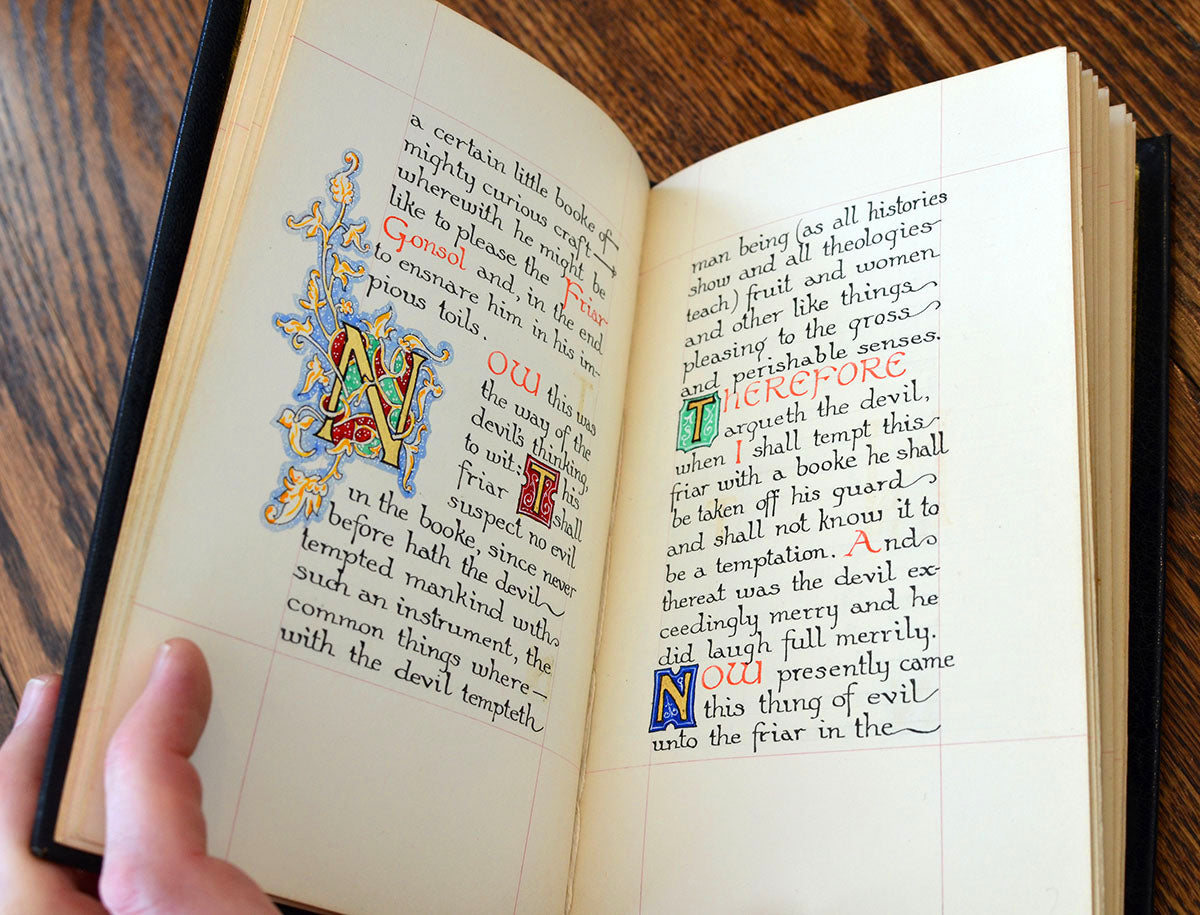 a certain little booke of
mighty curious craft
wherewith he might be
like to please the Friar
Gonsol and, in the end
to ensnare him in his im-
pious toils.
NOW this was
the way of the
devil's thinking,
to wit: This
friar shall
suspect no evil
in the booke, since never
before hath the devil
tempted mankind with
such an instrument, the
common things where-
with the devil tempteth
man being (as all histories
show and all theologies
teach) fruit and women
and other like things
pleasing to the gross
and perishable senses.
THEREFORE
argueth the devil,
when I shall tempt this
friar with a booke he shall
be taken off his guard
and shall not know it to
be a temptation. And
thereat was the devil ex-
ceedingly merry and he
did laugh full merrily.
NOW presently came
this thing of evil
unto the friar in the